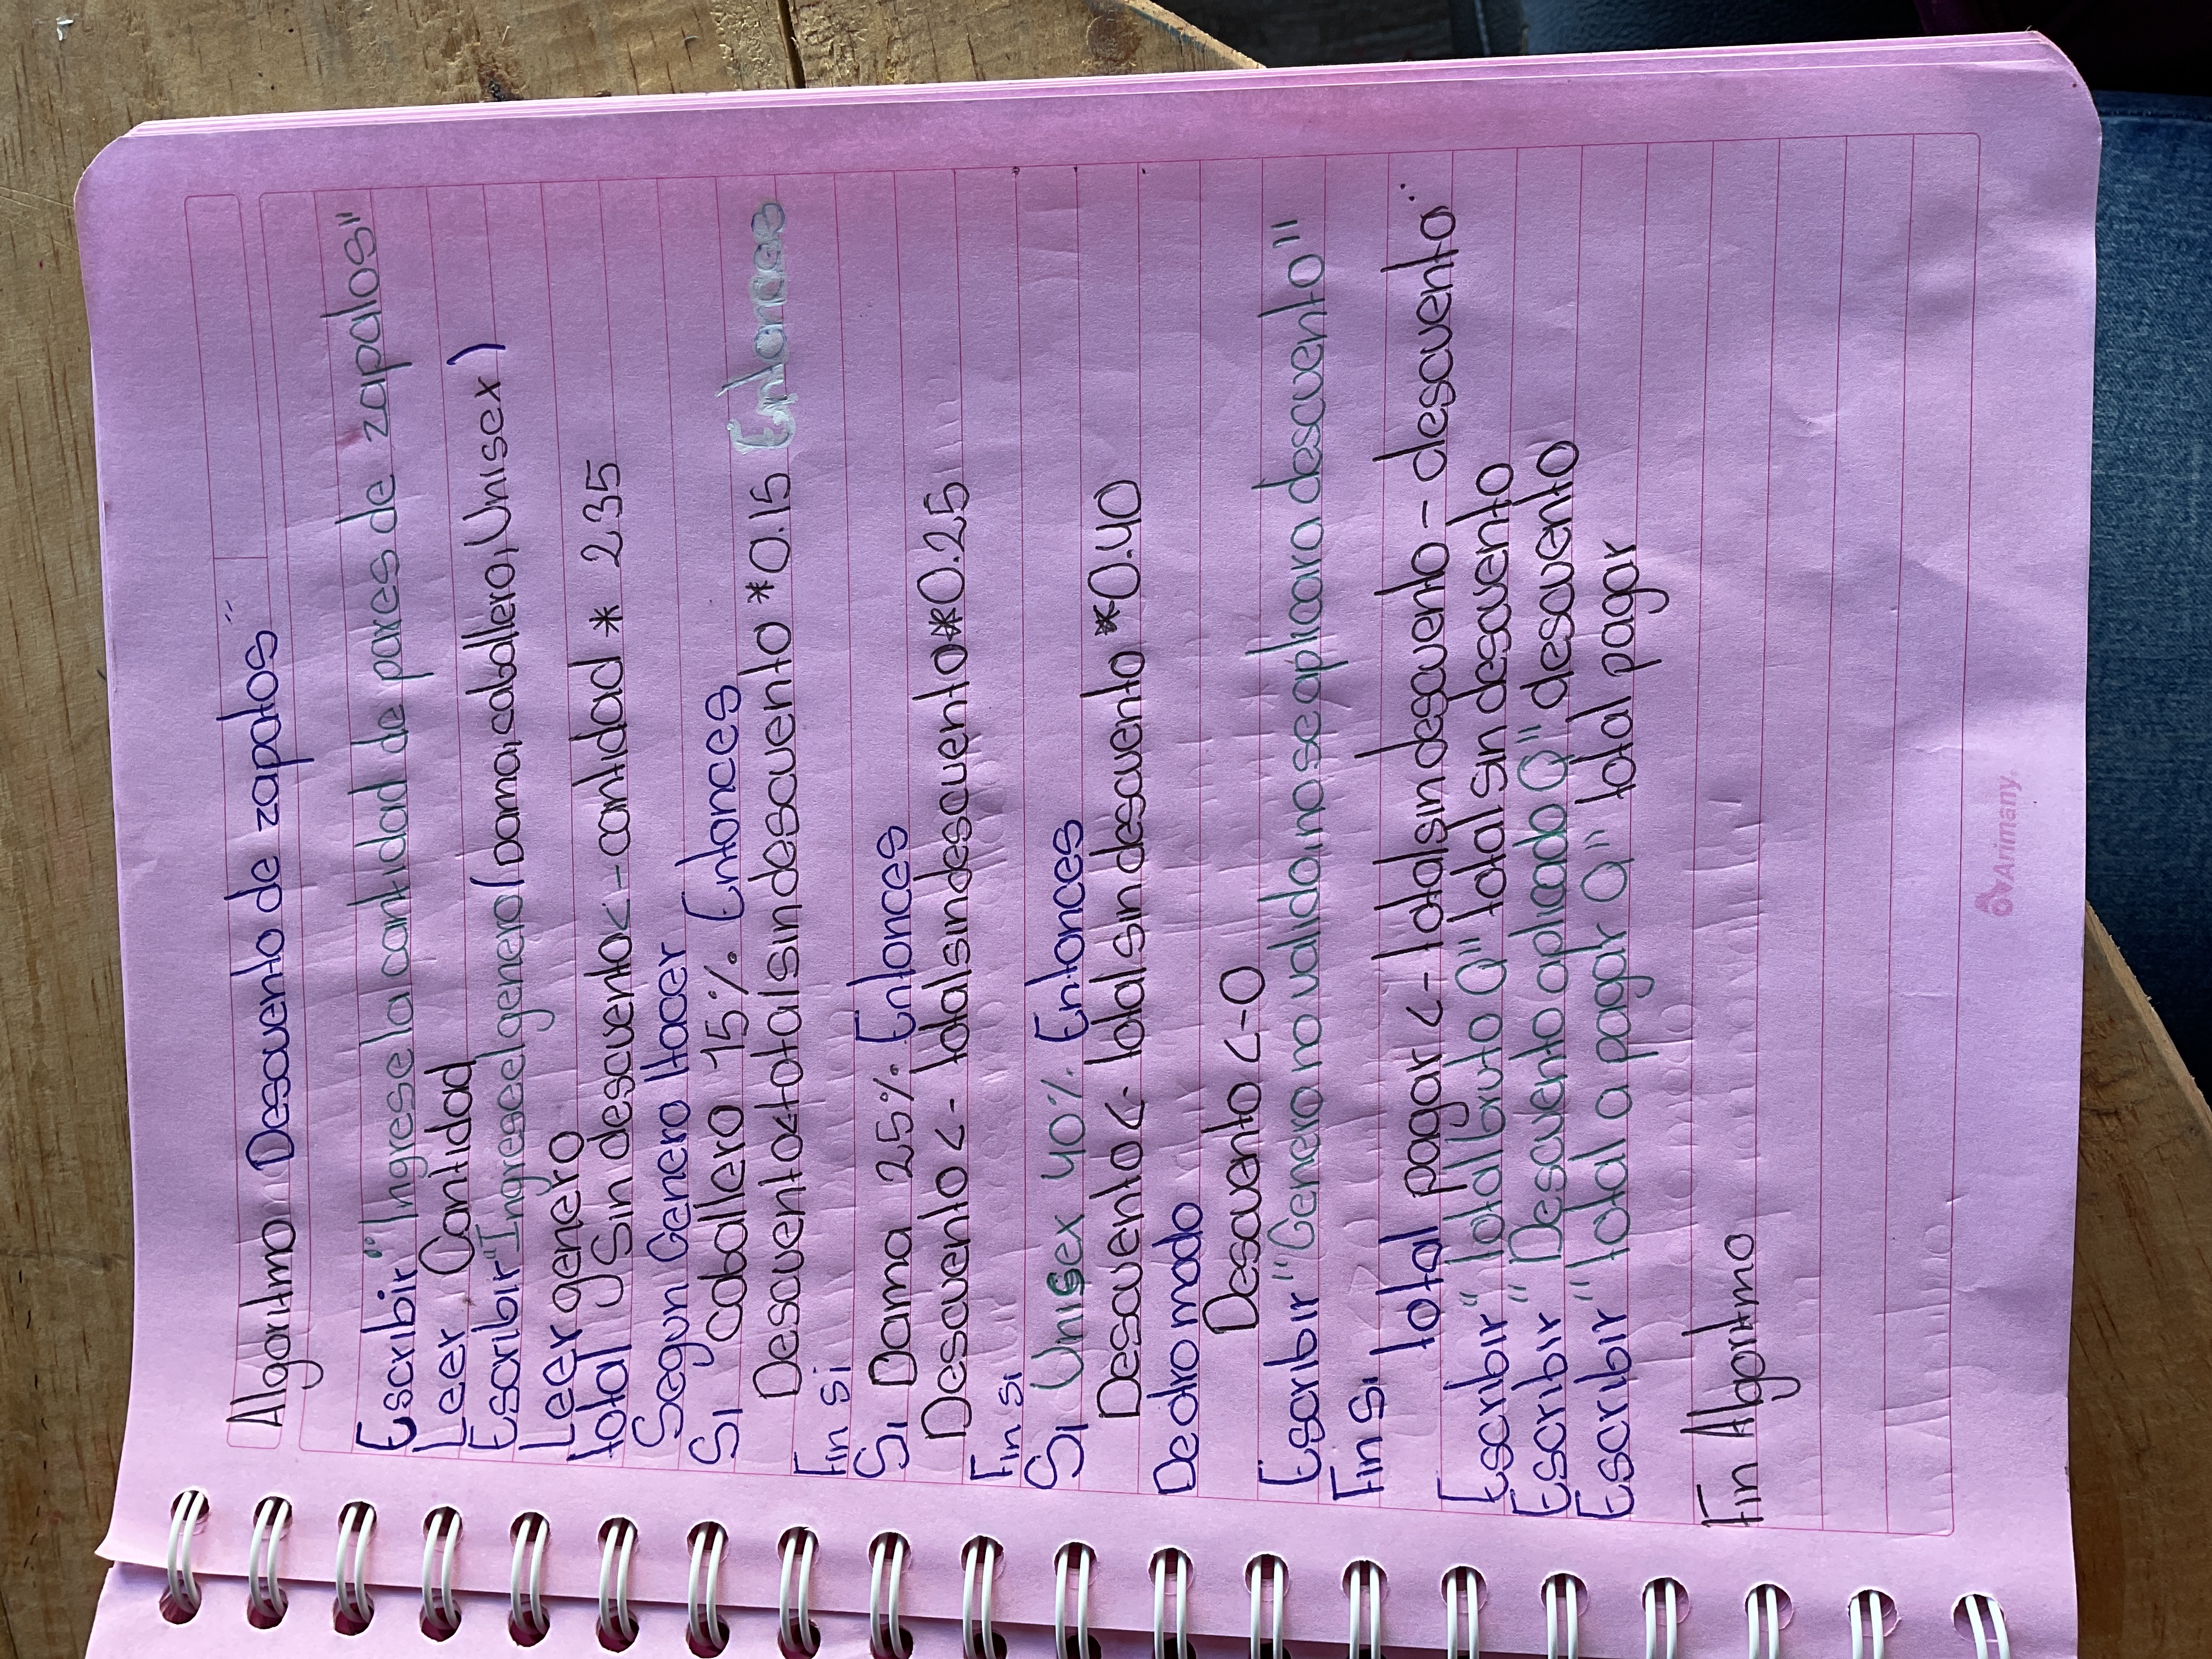 Algoritmo Descuento de zapatos"
Escribir "Ingrese la cantidad de pares de zapatos"
Leer Cantidad
Escribir "Ingrese el genero (Dama, caballero, Unisex)
Leer genero
total Sin descuento <- cantidad * 235
Segun Genero Hacer
Si caballero 15%. Entonces
Descuento <total sin descuento * 0.15 Entonces
Fin Si
Si Dama 25%. Entonces
Descuento <- total sin descuento * 0.25
Fin si
Si Unisex 40%. Entonces
Descuento <- total sin descuento * 0.40
De otro modo
Descuento <-0
Escribir "Genero no valido, no se aplicara descuento"
Fin Si
total pagar <- total sin descuento - descuento"
Escribir "total bruto Q" total sin descuento
Escribir "Descuento aplicado Q" descuento
Escribir "total a pagar Q" total pagar
Fin Algoritmo
Arimany